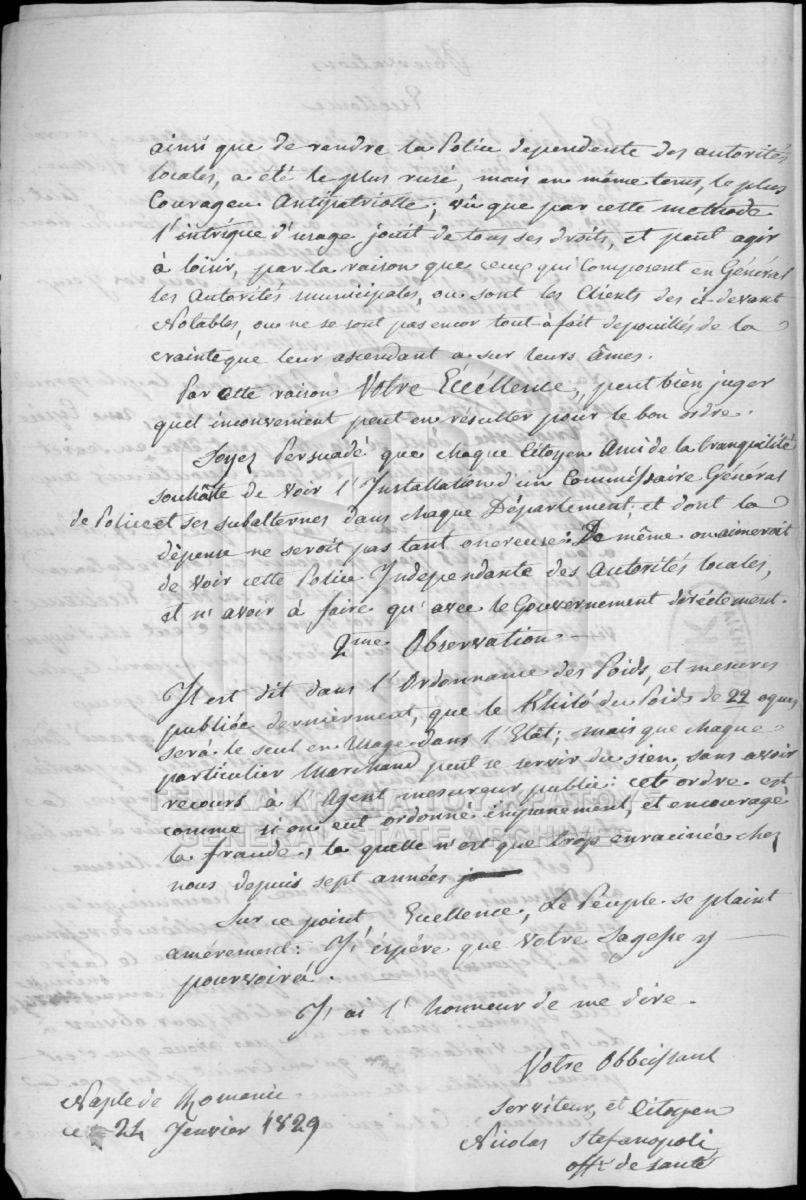 ainsi que de rendre la Police dependente des autorités
locales, a été le plus rusé, mais en même tems, le plus
Courageu Antipatriotte; vû que par cette methode
l'intrigue d'usage jouit de tous ses droits, et peut agir
à loisir, par la raison que ceux qui Composent en Général
les Autorités municipales, ou sont les Clients des ci-devant
Notables, ou ne se sont pas encor tout-à-fait depouillés de la
crainte que leur ascendant a sur leurs âmes.
Par cette raison Votre Eccéllence, peut bien juger
quel inconvenient peut en résulter pour le bon ordre.
Soyez Persuadé que chaque Citoyen Ami de la tranquilité
souhâite de voir l'Installation d'un Commissaire Général
de Police et ses subalternes dans chaque Département; et dont la
dépense ne seroit pas tant onereuse: De même on aimeroit
de voir cette Police Independante des Autorités locales,
et n'avoir à faire qu'avec le Gouvernement diréctement.
2me Observation
Il est dit dans l'Ordonnance des Poids, et mesures
publiée dernierment, que le Khiló du Poids de 22 oques
será le seul en Usage dans l'Etat; mais que chaque
particulier Marchand peut se servir du sien, sans avoir
recours à l'Agent mesureur public: cet ordre est
comme si on eut ordonné impunement, et encouragé
la fraude, la quelle n'est que trop enracinée chez
nous depuis sept années
Sur ce point Eccellence, Le Peuple se plaint
amérement: J'éspére que Votre Sagesse y
pourvoirá.
J'ai l'honneur de me dire.
Votre Obbeissant
serviteur, et Citoyen
Nicolas Stefanopoli
offr. de santé
Naple de Romanie
ce 24 Jenvier 1829
ΓΕΝΙΚΑ ΑΡΧΕΙΑ ΤΟΥ ΚΡΑΤΟΥΣ
GENERAL STATE ARCHIVES